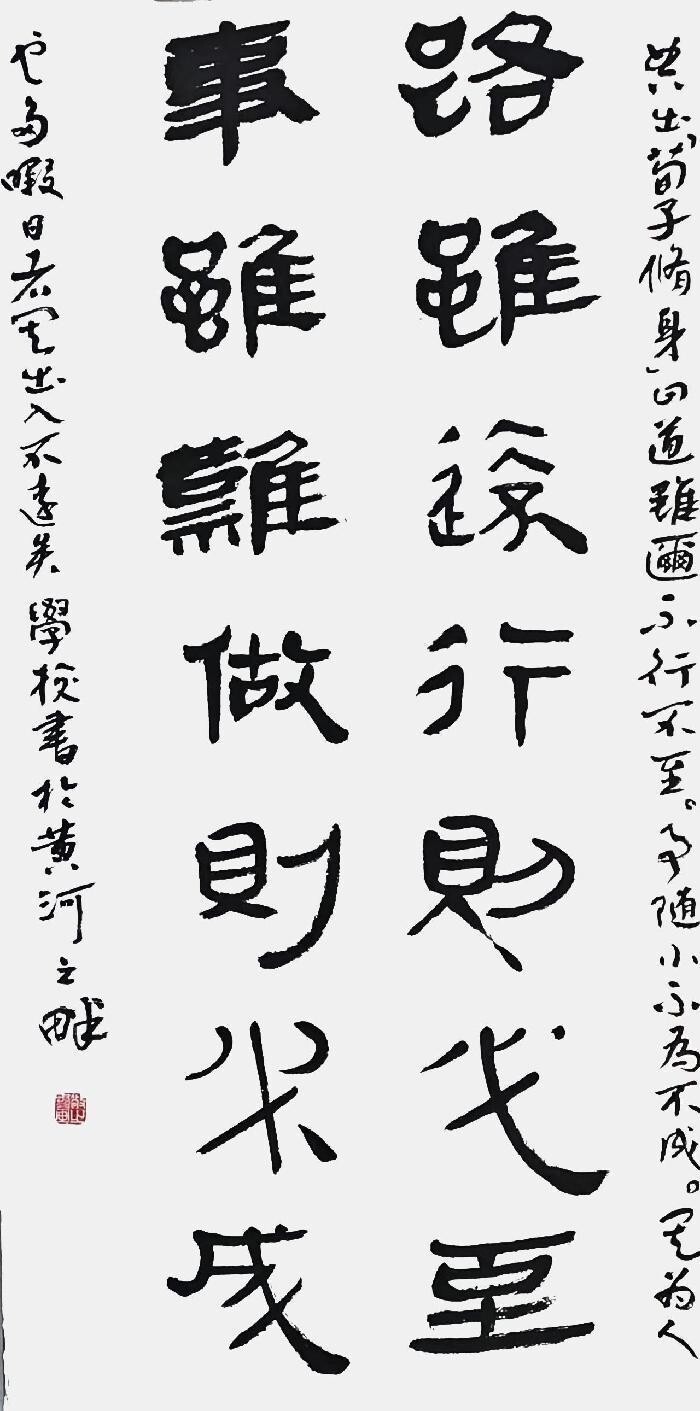 典出「荀子脩身」曰道雖邇不行不至。事隨小不為不成。其為人
路雖遠行則必至
事雖難做則必成
也多暇日者其出入不遠矣 學校書於黃河之畔